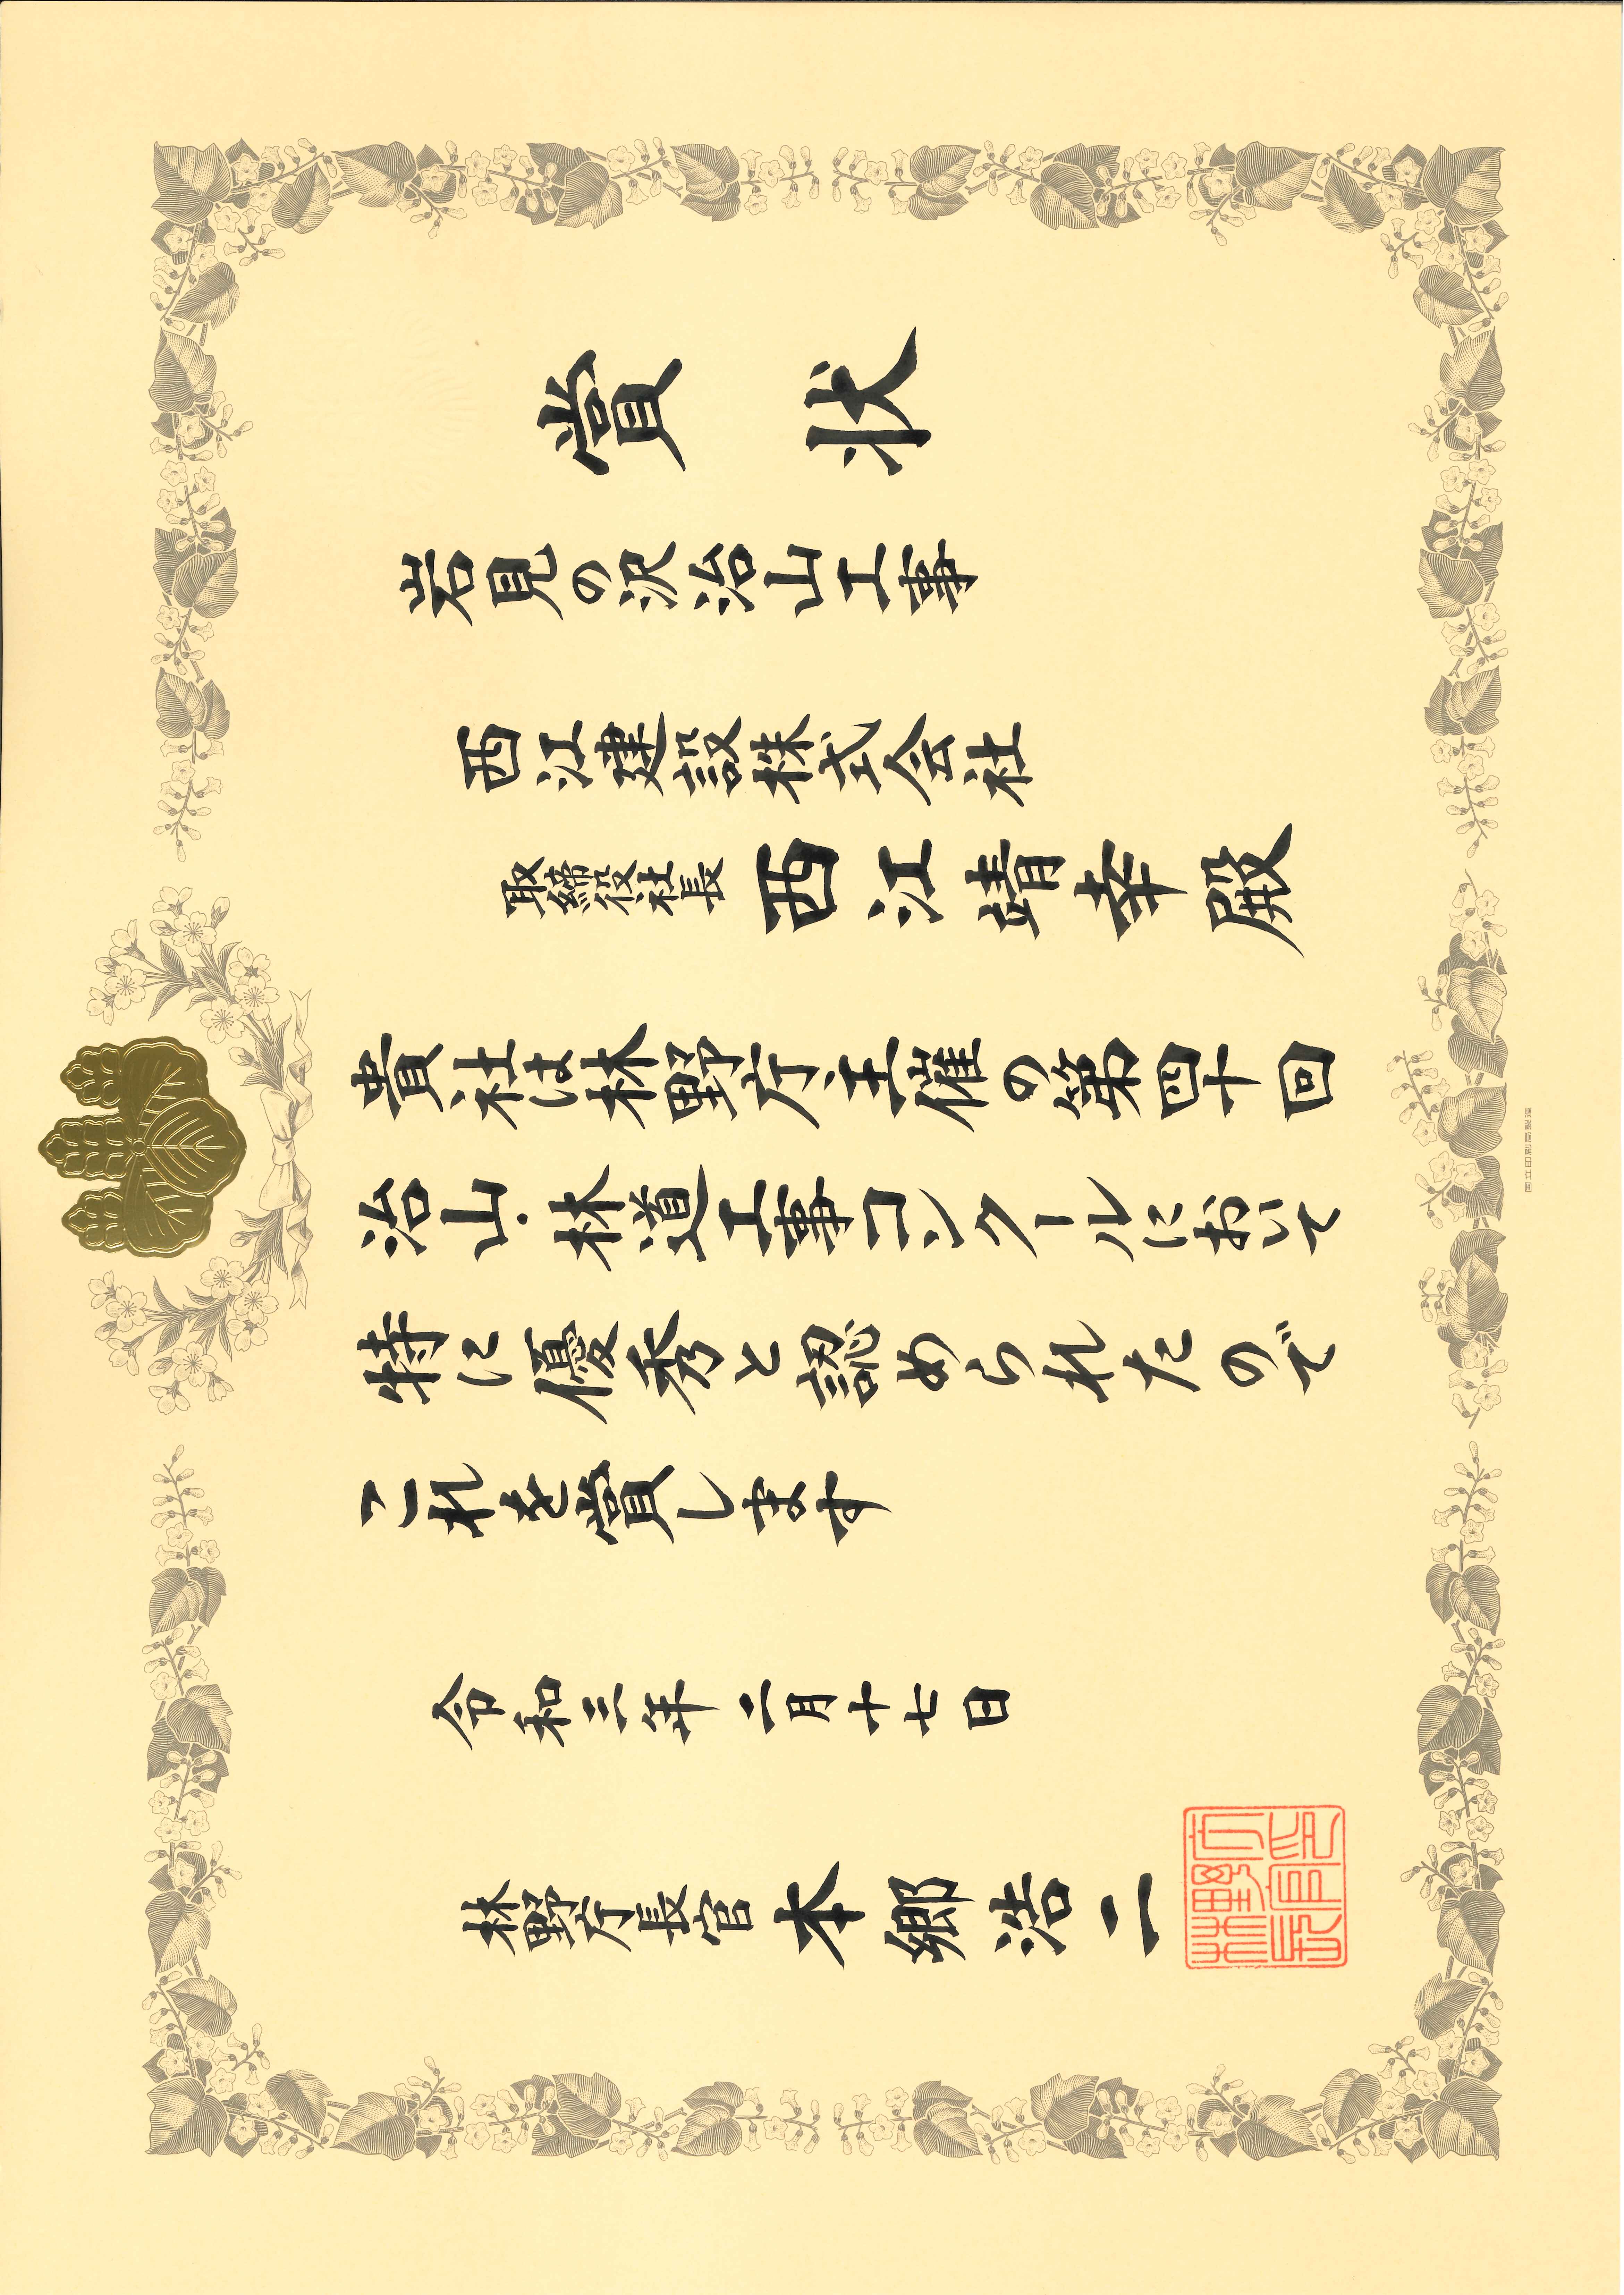 賞状
岩見の沢治山工事
西江建設株式会社
取締役社長 西江靖幸殿
貴社は林野庁主催の第四十回
治山・林道工事コンクールにおいて
特に優秀と認められたので
これを賞します
令和三年二月十七日
林野庁長官 本郷浩二
林野庁長官印
國立印刷局製造